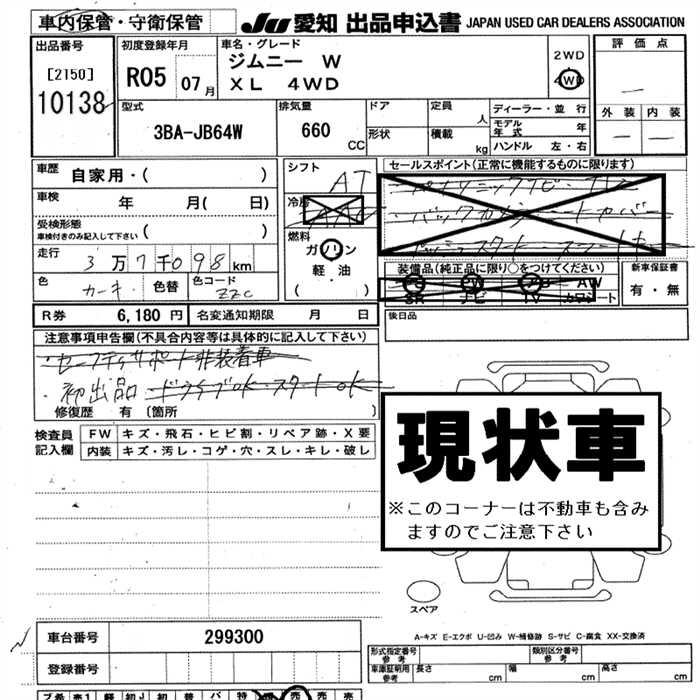 車内保管・守衛保管
JU 愛知 出品申込書 JAPAN USED CAR DEALERS ASSOCIATION
出品番号
[2150]
10138
初度登録年月
R05 07月
車名・グレード
ジムニー W
XL 4WD
2WD
4WD
評価点
—
外装 内装
— —
型式
3BA-JB64W
排気量
660 CC
ドア
形状
定員 人
積載 kg
ディーラー・並行
モデル年式 年
ハンドル 左・右
車歴
自家用・( )
車検
年 月( 日)
受検形態
車検付きのみ記入して下さい ( )
走行
3万7千098km
色 カーキ 色替 色コード ZZC
シフト
AT
冷房
AAC
燃料
ガソリン
軽・油
( )
セールスポイント(正常に機能するものに限ります)
パナソニックナビ・
バックカメラ シートカバー
プッシュスタート スマートキー
装備品(純正品に限り○をつけてください)
PS PW AB AW
SR ナビ TV カワシート
新車保証書
有・無
R券 6,180円 名変通知期限 月 日
後日品
注意事項申告欄(不具合内容等は具体的に記入して下さい)
・セーフティサポート非装着車
・初出品 ドライブOK スタートOK
修復歴 有 〔箇所 〕
検査員記入欄
FW キズ・飛石・ヒビ割・リペア跡・X要
内装 キズ・汚レ・コゲ・穴・スレ・キレ・破レ
現状車
※このコーナーは不動車も含み
ますのでご注意下さい
スペア
A-キズ E-エクボ U-凹み W-補修跡 S-サビ C-腐食 XX-交換済
車台番号 299300
登録番号
形式指定番号 参考 類別区分番号 参考
車庫証明用 参考 長さ 幅 高さ
cm cm cm